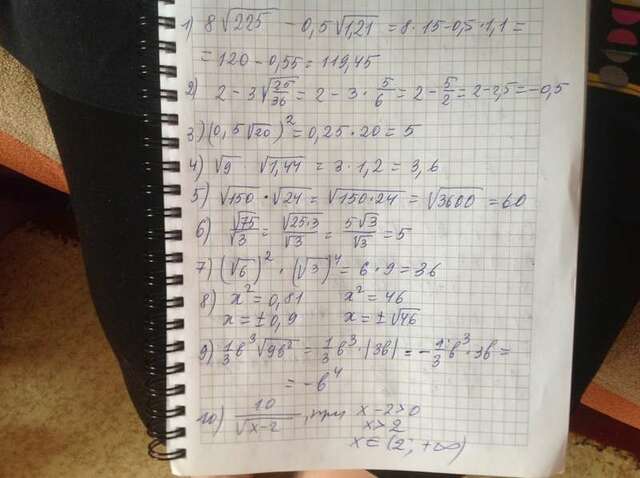 1) 8√225 - 0,5√1,21 = 8·15-0,5·1,1=
= 120 - 0,55 = 119,45
2) 2 - 3√25/36 = 2 - 3·5/6 = 2 - 5/2 = 2-2,5 = -0,5
3) (0,5√20)² = 0,25·20 = 5
4) √9 · √1,44 = 3·1,2 = 3,6
5) √150 · √24 = √150·24 = √3600 = 60
6) √75/√3 = √25·3/√3 = 5√3/√3 = 5
7) (√6)² · (√3)⁴ = 6·9 = 36
8) x² = 0,81 x² = 46
x = ± 0,9 x = ±√46
9) 1/3 b³√9b² = 1/3 b³·|3b| = -1/3·b³·3b =
= -b⁴
10) 10/√x-2, при x-2>0
x>2
x ∈ (2; +∞)